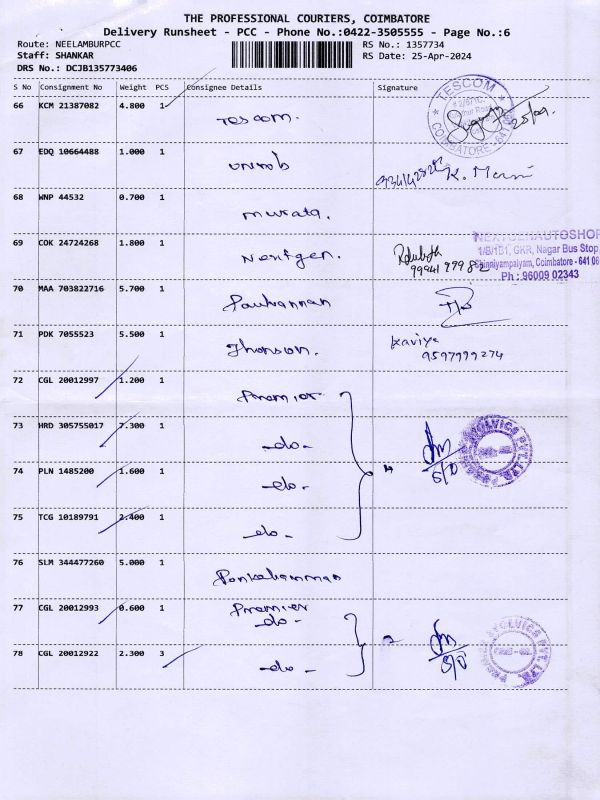 THE PROFESSIONAL COURIERS, COIMBATORE
Delivery Runsheet - PCC - Phone No.:0422-3505555 - Page No.:6
Route: NEELAMBURPCC RS No.: 1357734
Staff: SHANKAR RS Date: 25-Apr-2024
DRS No.: DCJB135773406
S No Consignment No Weight PCS Consignee Details Signature
66 KCM 21387082 4.800 1 Tescom. TESCOM COIMBATORE
67 EDQ 10664488 1.000 1 K. Mani
68 WNP 44532 0.700 1 murata.
69 COK 24724268 1.800 1 Nextgen. NEXTGEN AUTOSHOP
1/B/1B1, GKR, Nagar Bus Stop
Chinniyampalayam, Coimbatore - 641 06
Ph : 96009 02343
70 MAA 703822716 5.700 1
71 PDK 7055523 5.500 1 Jhonson. Kaviya
9597999274
72 CGL 20012997 1.200 1 Premier
73 HRD 305755017 7.300 1 -do-
74 PLN 1485200 1.600 1 -do- 4
75 TCG 10189791 2.400 1 -do-
76 SLM 344477260 5.000 1
77 CGL 20012993 0.600 1 Premier
-do-
78 CGL 20012922 2.300 3 -do-